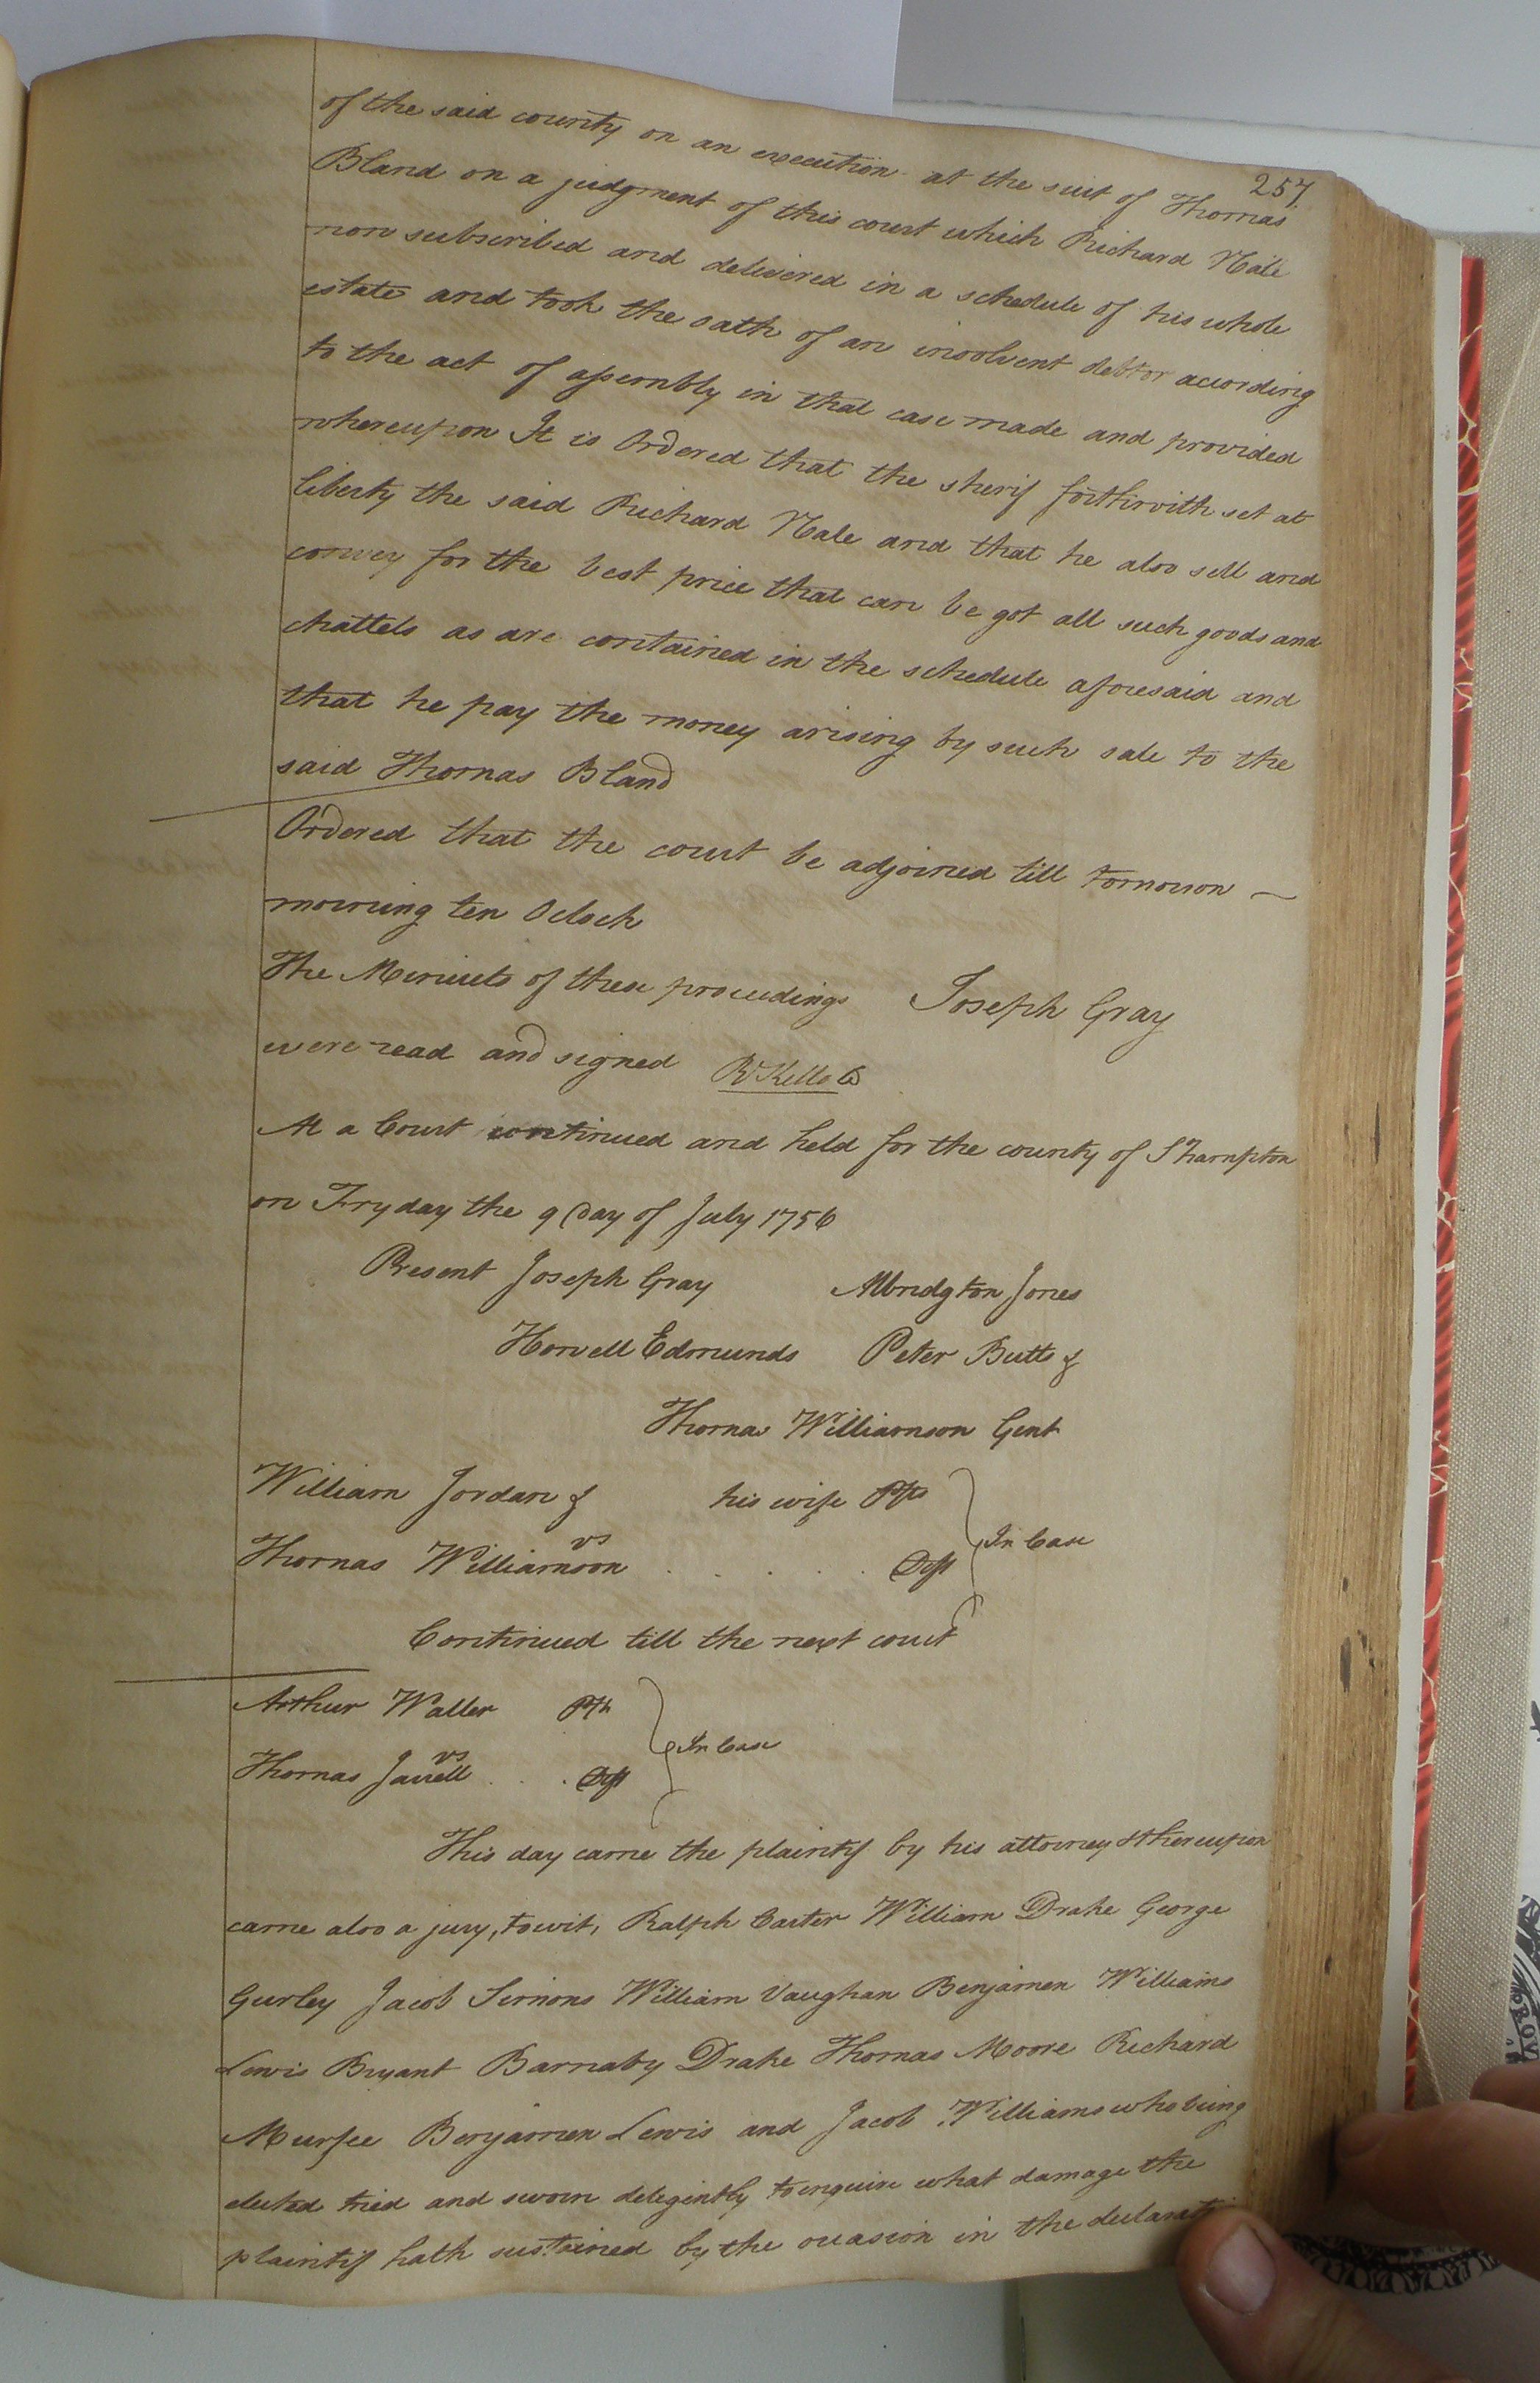 257
of the said county on an execution at the suit of Thomas
Bland on a judgment of this court which Richard Nale
now subscribed and delivered in a schedule of his whole
estate and took the oath of an insolvent debtor according
to the act of assembly in that case made and provided
whereupon It is Ordered that the sherif forthwith set at
liberty the said Richard Nale and that he also sell and
convey for the best price that can be got all such goods and
chattels as are contained in the schedule aforesaid and
that he pay the money arising by such sale to the
said Thomas Bland
Ordered that the court be adjoined till tomorrow
morning ten Oclock
The Minuets of these proceedings Joseph Gray
were read and signed R Kello C
At a Court continued and held for the county of S hampton
on Fryday the 9 Day of July 1756
Present Joseph Gray Albridgton Jones
Howell Edmunds Peter Butts &
Thomas Williamson Gent
William Jordan & his wife Plfs
vs In Case
Thomas Williamson . . . . . Deft
Continued till the next court
Arthur Waller Plt
vs In Case
Thomas Jarrell . . . Deft
This day came the plaintif by his attorney & thereupon
came also a jury, towit, Ralph Carter William Drake George
Gurley Jacob Simons William Vaughan Benjamen Williams
Lewis Bryant Barnaby Drake Thomas Moore Richard
Murfee Benjamen Lewis and Jacob Williams who being
elected tried and sworn deligently to inquire what damage the
plaintif hath sustained by the occasion in the declarati